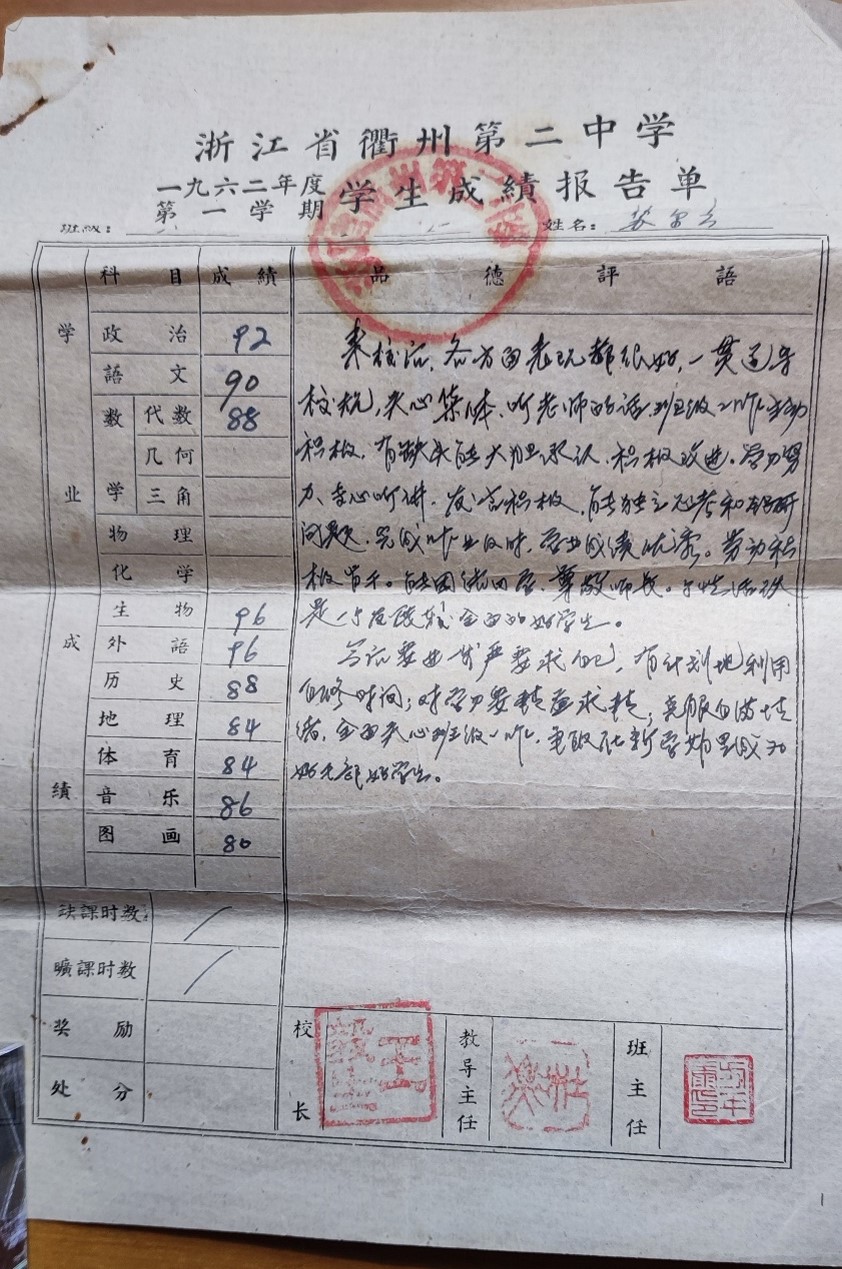 浙江省衢州第二中学
一九六二年度
第一学期
学生成績报告单
班級：
姓名：
学业成績
科目 成績
品德評語
政治 92
語文 90
数学
代数 88
几何
三角
物理
化学
生物 96
外語 96
历史 88
地理 84
体育 84
音乐 86
图画 80
缺課时数：/
曠課时数 /
奖励
处分
来校后，各方面表现都很好，一贯遵守
校规，关心集体，听老师的话，班级工作主动
积极，有缺失能大胆承认，积极改进，学习努
力、专心听讲，发言积极，能独立思考和钻研
问题，完成作业及时，学业成绩优秀。劳动积
极肯干。能团结同学，尊敬师长。
是一个发展较全面的好学生。
今后要进一步严要求自己，有计划地利用
自修时间；对学习要精益求精，克服自满情
绪，全面关心班级工作，争取在新学期里成为
好干部好学生。
校长
教导主任
班主任